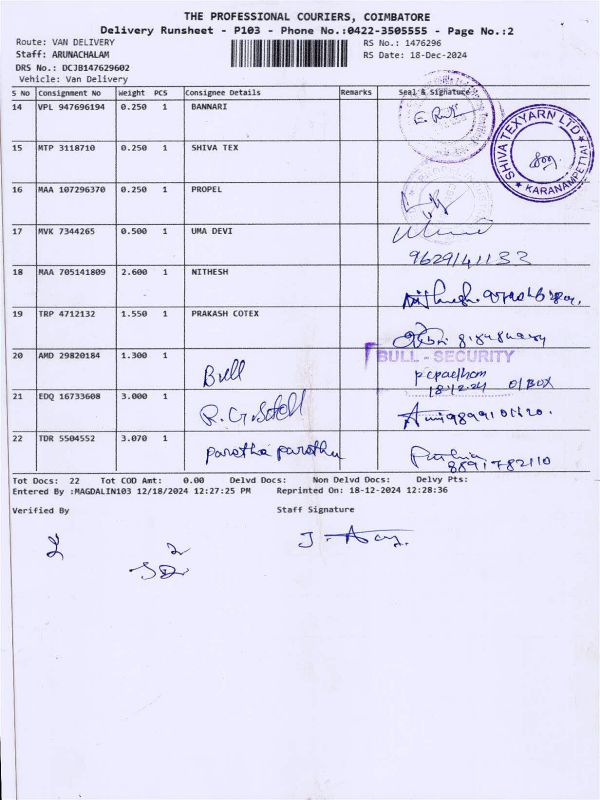 THE PROFESSIONAL COURIERS, COIMBATORE
Delivery Runsheet - P103 - Phone No.:0422-3505555 - Page No.:2
Route: VAN DELIVERY RS No.: 1476296
Staff: ARUNACHALAM RS Date: 18-Dec-2024
DRS No.: DCJB147629602
Vehicle: Van Delivery
S No Consignment No Weight PCS Consignee Details Remarks Seal & Signature
14 VPL 947696194 0.250 1 BANNARI
15 MTP 3118710 0.250 1 SHIVA TEX
SHIVA TEXYARN LTD
KARANAMPETTAI
16 MAA 107296370 0.250 1 PROPEL
17 MVK 7344265 0.500 1 UMA DEVI
9629141133
18 MAA 705141809 2.600 1 NITHESH
19 TRP 4712132 1.550 1 PRAKASH COTEX
20 AMD 29820184 1.300 1 Bull
BULL - SECURITY
18/12/24 01 BOX
21 EDQ 16733608 3.000 1
22 TDR 5504552 3.070 1
8891782110
Tot Docs: 22 Tot COD Amt: 0.00 Delvd Docs: Non Delvd Docs: Delvy Pts:
Entered By :MAGDALIN103 12/18/2024 12:27:25 PM Reprinted On: 18-12-2024 12:28:36
Verified By Staff Signature